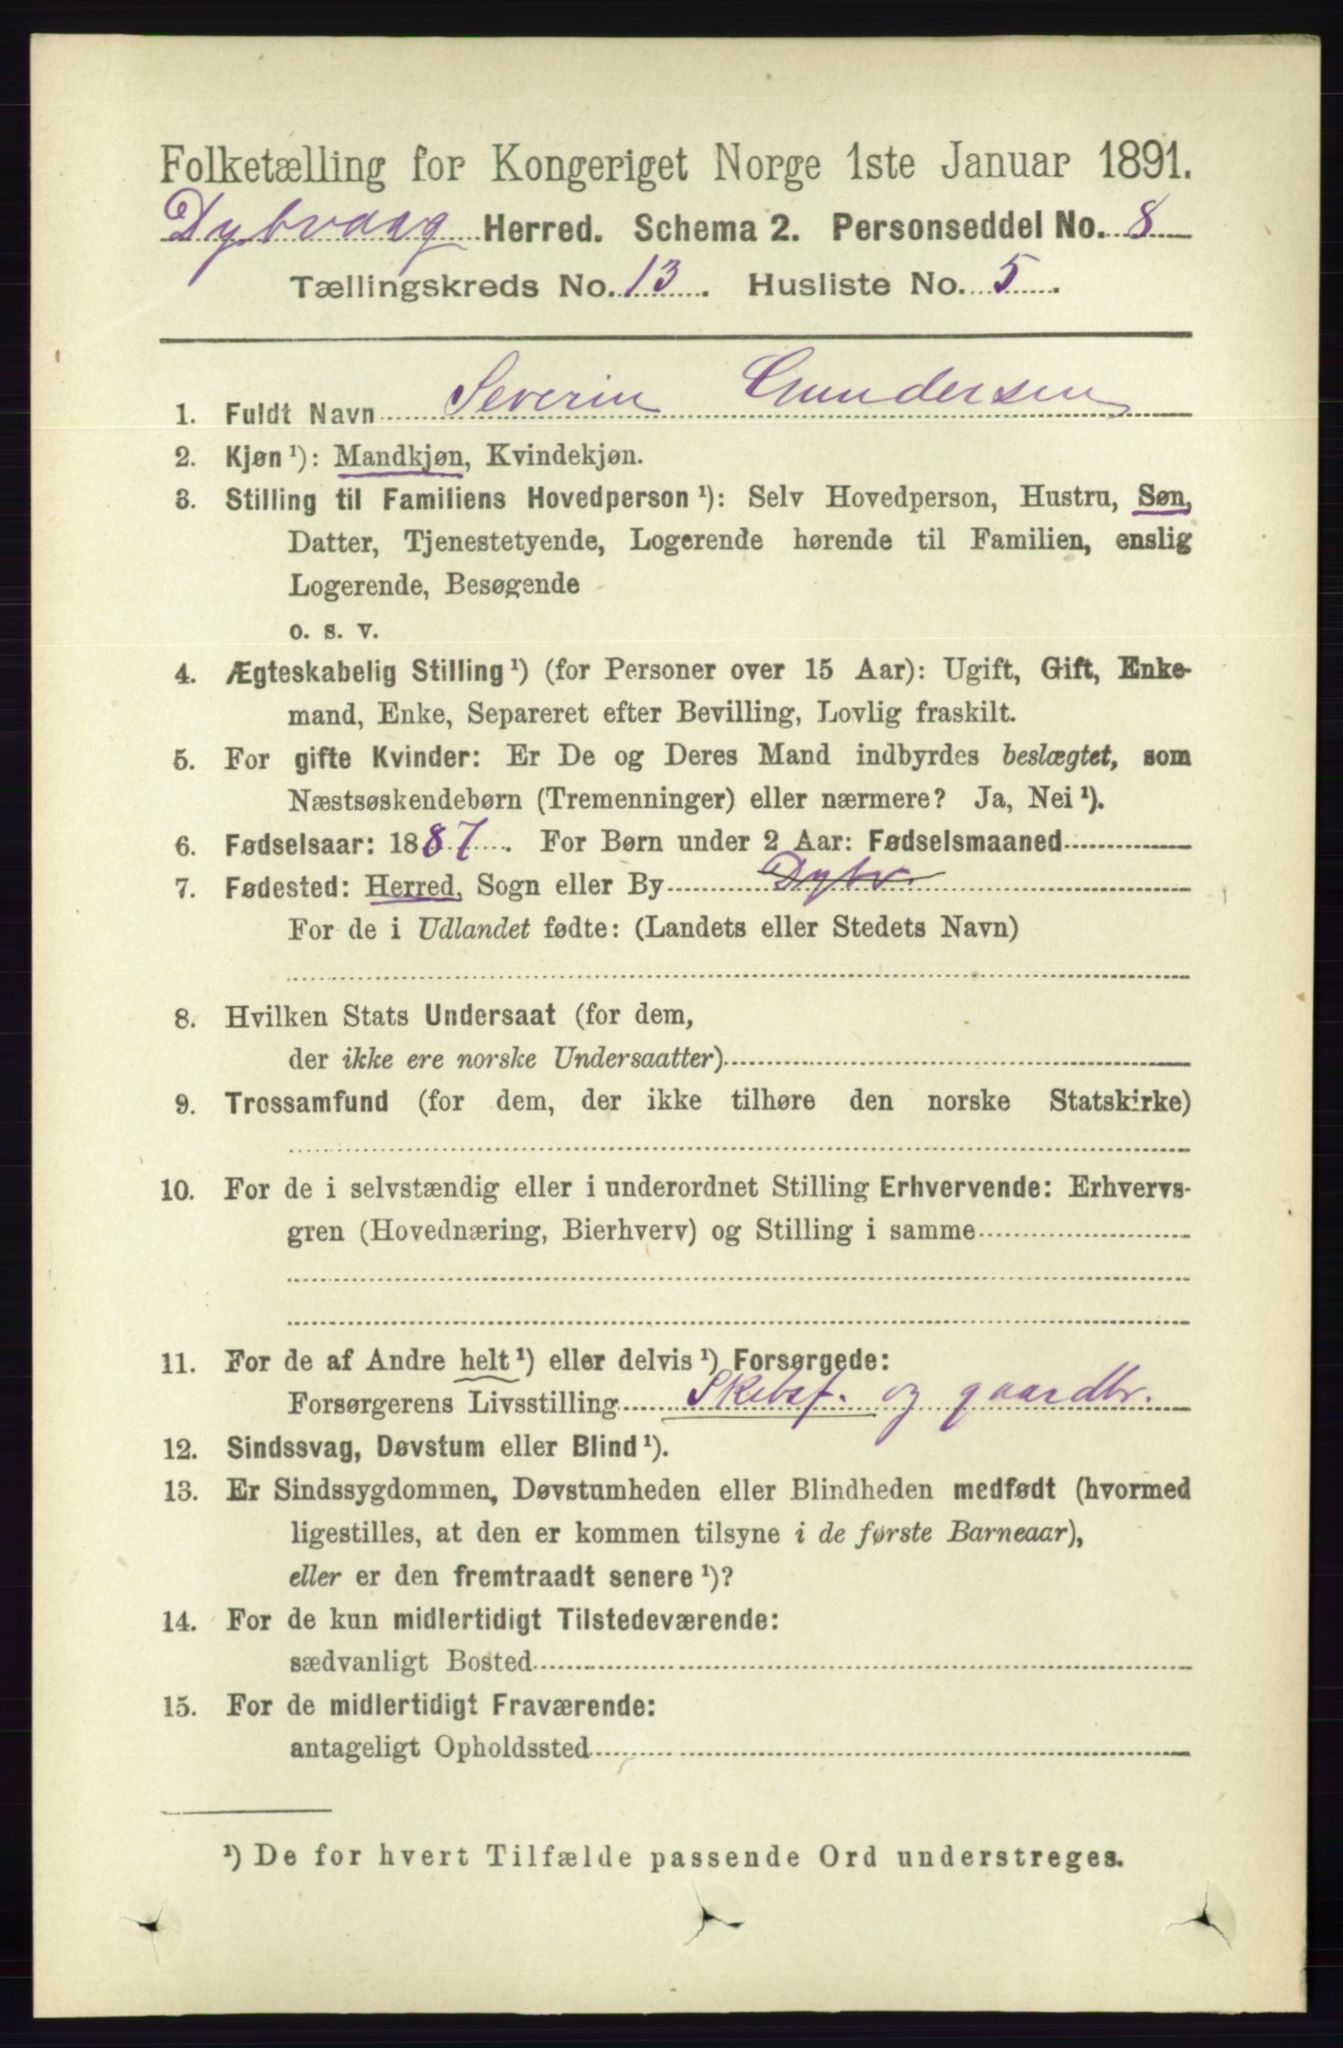 Folketælling for Kongeriget Norge 1ste Januar 1891.
Dybvaag Herred. Schema 2. Personseddel No. 8
Tællingskreds No. 13. Husliste No. 5.
1. Fuldt Navn Severin Gundersen
2. Kjøn ¹): Mandkjøn, Kvindekjøn.
3. Stilling til Familiens Hovedperson ¹): Selv Hovedperson, Hustru, Søn,
Datter, Tjenestetyende, Logerende hørende til Familien, enslig
Logerende, Besøgende
o. s. v.
4. Ægteskabelig Stilling ¹) (for Personer over 15 Aar): Ugift, Gift, Enke-
mand, Enke, Separeret efter Bevilling, Lovlig fraskilt.
5. For gifte Kvinder: Er De og Deres Mand indbyrdes beslægtet, som
Næstsøskendebørn (Tremenninger) eller nærmere? Ja, Nei ¹).
6. Fødselsaar: 1887. For Børn under 2 Aar: Fødselsmaaned
7. Fødested: Herred, Sogn eller By Dybv.
For de i Udlandet fødte: (Landets eller Stedets Navn)
8. Hvilken Stats Undersaat (for dem,
der ikke ere norske Undersaatter)
9. Trossamfund (for dem, der ikke tilhøre den norske Statskirke)
10. For de i selvstændig eller i underordnet Stilling Erhvervende: Erhvervs-
gren (Hovednæring, Bierhverv) og Stilling i samme
11. For de af Andre helt ¹) eller delvis ¹) Forsørgede:
Forsørgerens Livsstilling Skibsf. og gaardbr.
12. Sindssvag, Døvstum eller Blind ¹).
13. Er Sindssygdommen, Døvstumheden eller Blindheden medfødt (hvormed
ligestilles, at den er kommen tilsyne i de første Barneaar),
eller er den fremtraadt senere ¹)?
14. For de kun midlertidigt Tilstedeværende:
sædvanligt Bosted
15. For de midlertidigt Fraværende:
antageligt Opholdssted
¹) De for hvert Tilfælde passende Ord understreges.